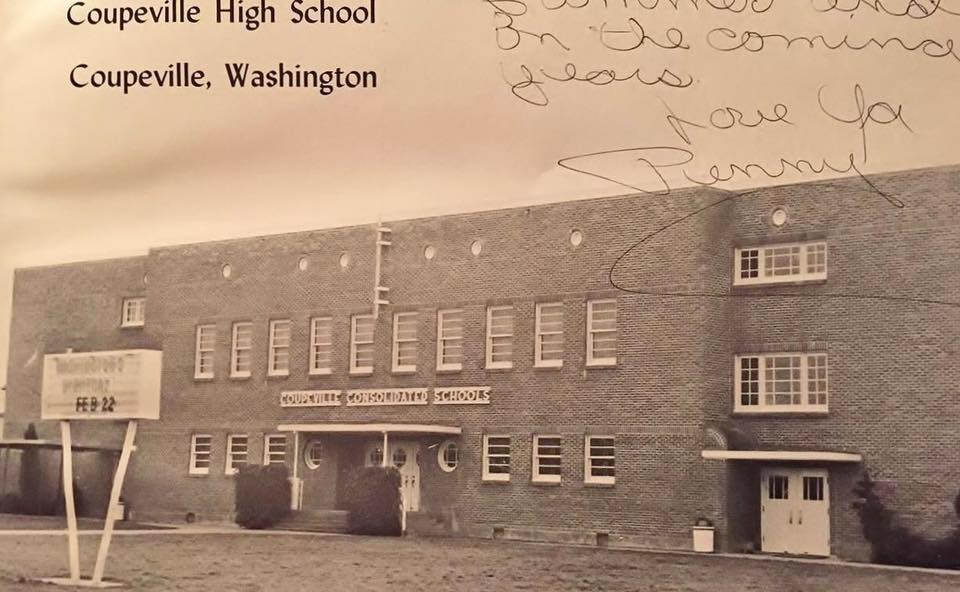 Coupeville High School
Coupeville, Washington
In the coming
years.
Love Ya
Penny
COUPEVILLE CONSOLIDATED SCHOOLS
FEB 22